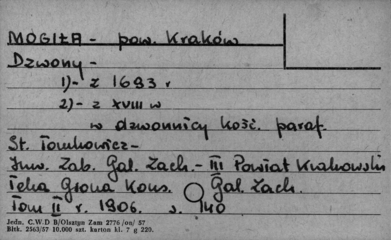 MOGIŁA - pow. Kraków
Dzwony -
1)- z 1693 r
2)- z XVIII w
w dzwonnicy kość. paraf.
St. Tomkowicz -
Inw. Zab. Gal. Zach. - III Powiat Krakowski
Teka Grona Kons. Gal. Zach.
Tom II r. 1906 s. 140
Jedn. C.W.D B/Olsztyn Zam 2776/on/ 57
Bltk. 2563/57 10,000 szt. karton kl. 7 g 220.